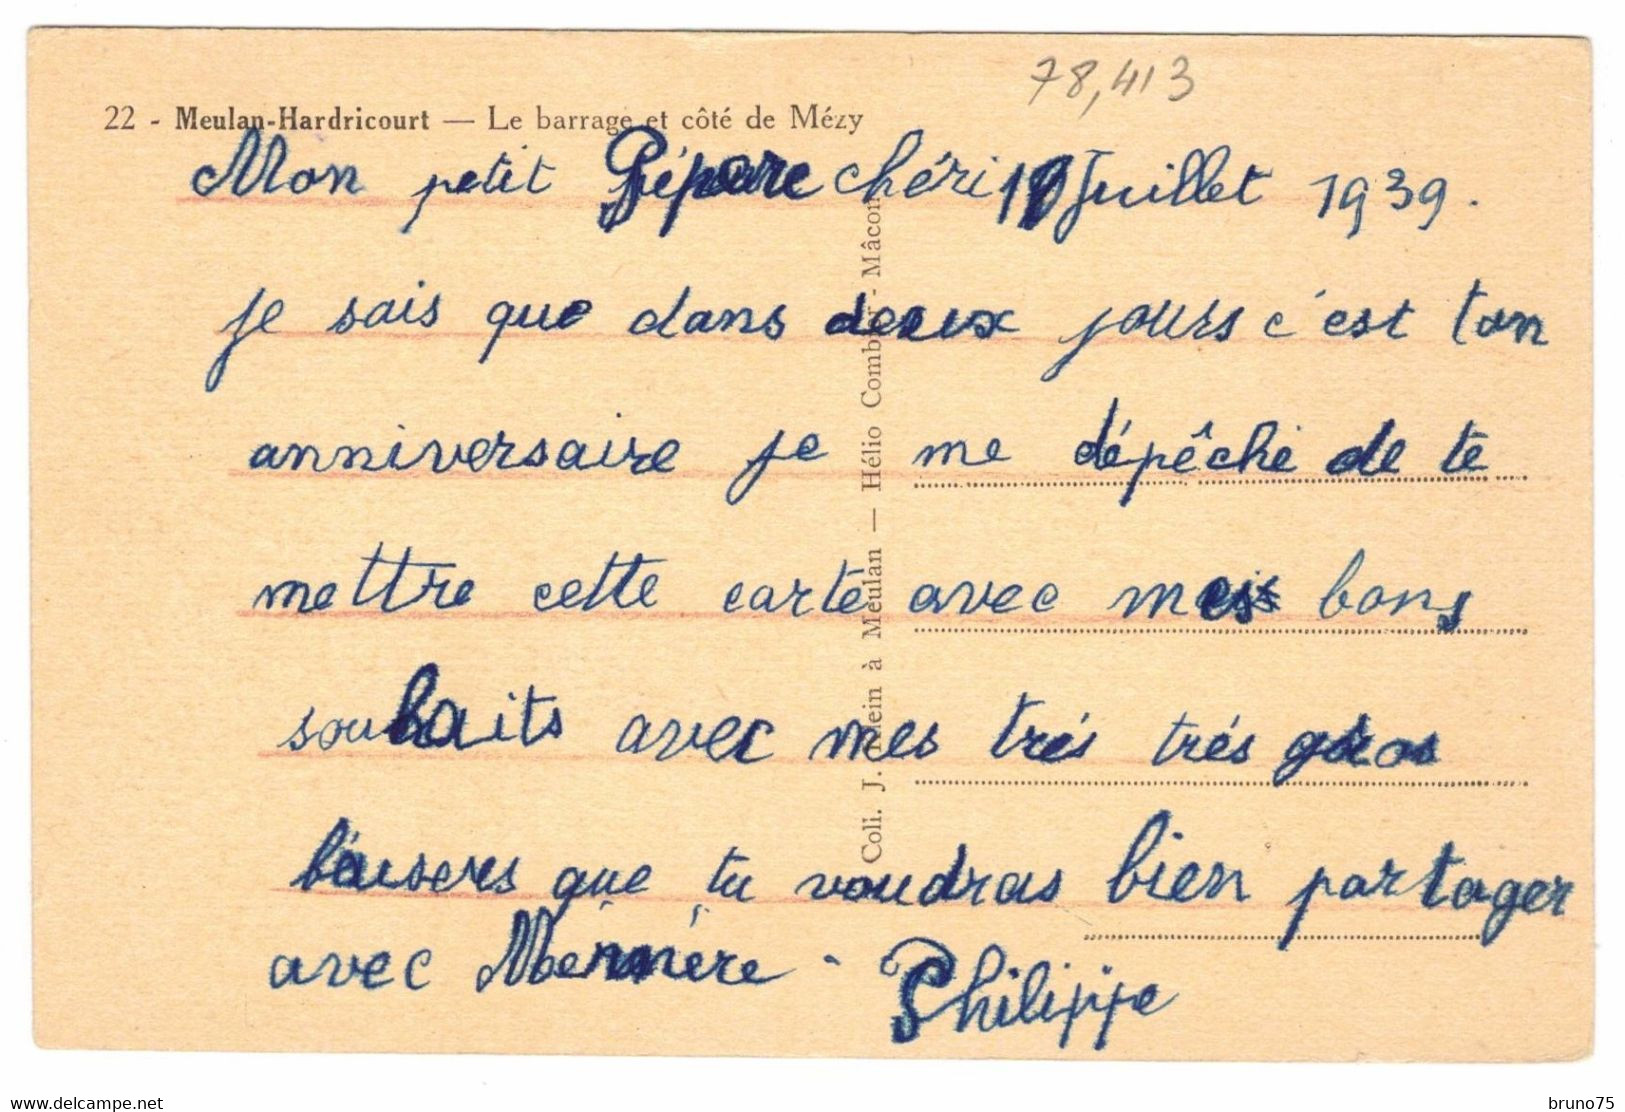 78,413
22 - Meulan-Hardricourt — Le barrage et côté de Mézy
Mon petit Pépère chéri Juillet 1939.
je sais que dans deux jours c'est ton
anniversaire je me dépêche de te
mettre cette carte avec mes bons
souhaits avec mes trés trés gros
baisers que tu voudras bien partager
avec Mémère.
Philippe
Coll. J. Klein à Meulan — Hélio Combier - Mâcon
www.delcampe.net
bruno75